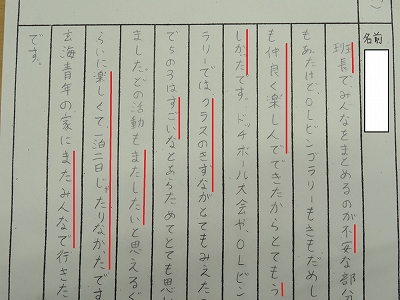 名前
班長で、みんなをまとめるのが不安な部分
もあったけど、OLビンゴラリーもきもだめし
も仲良く楽しんでできたからとてもう
しかったです。ドッチボール大会や、OLビン
ラリーでは、クラスのきずながとてもみえたの
で6の3はすごいなとあらためてとても思い
ました。どの活動もまたしたいと思えるぐ
らいに楽しくて、一泊二日じゃたりなかったです
玄海青年の家にまたみんなで行きた
です。